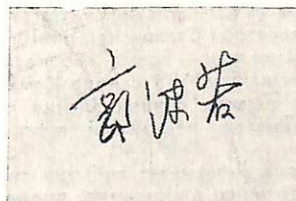 郭沫若